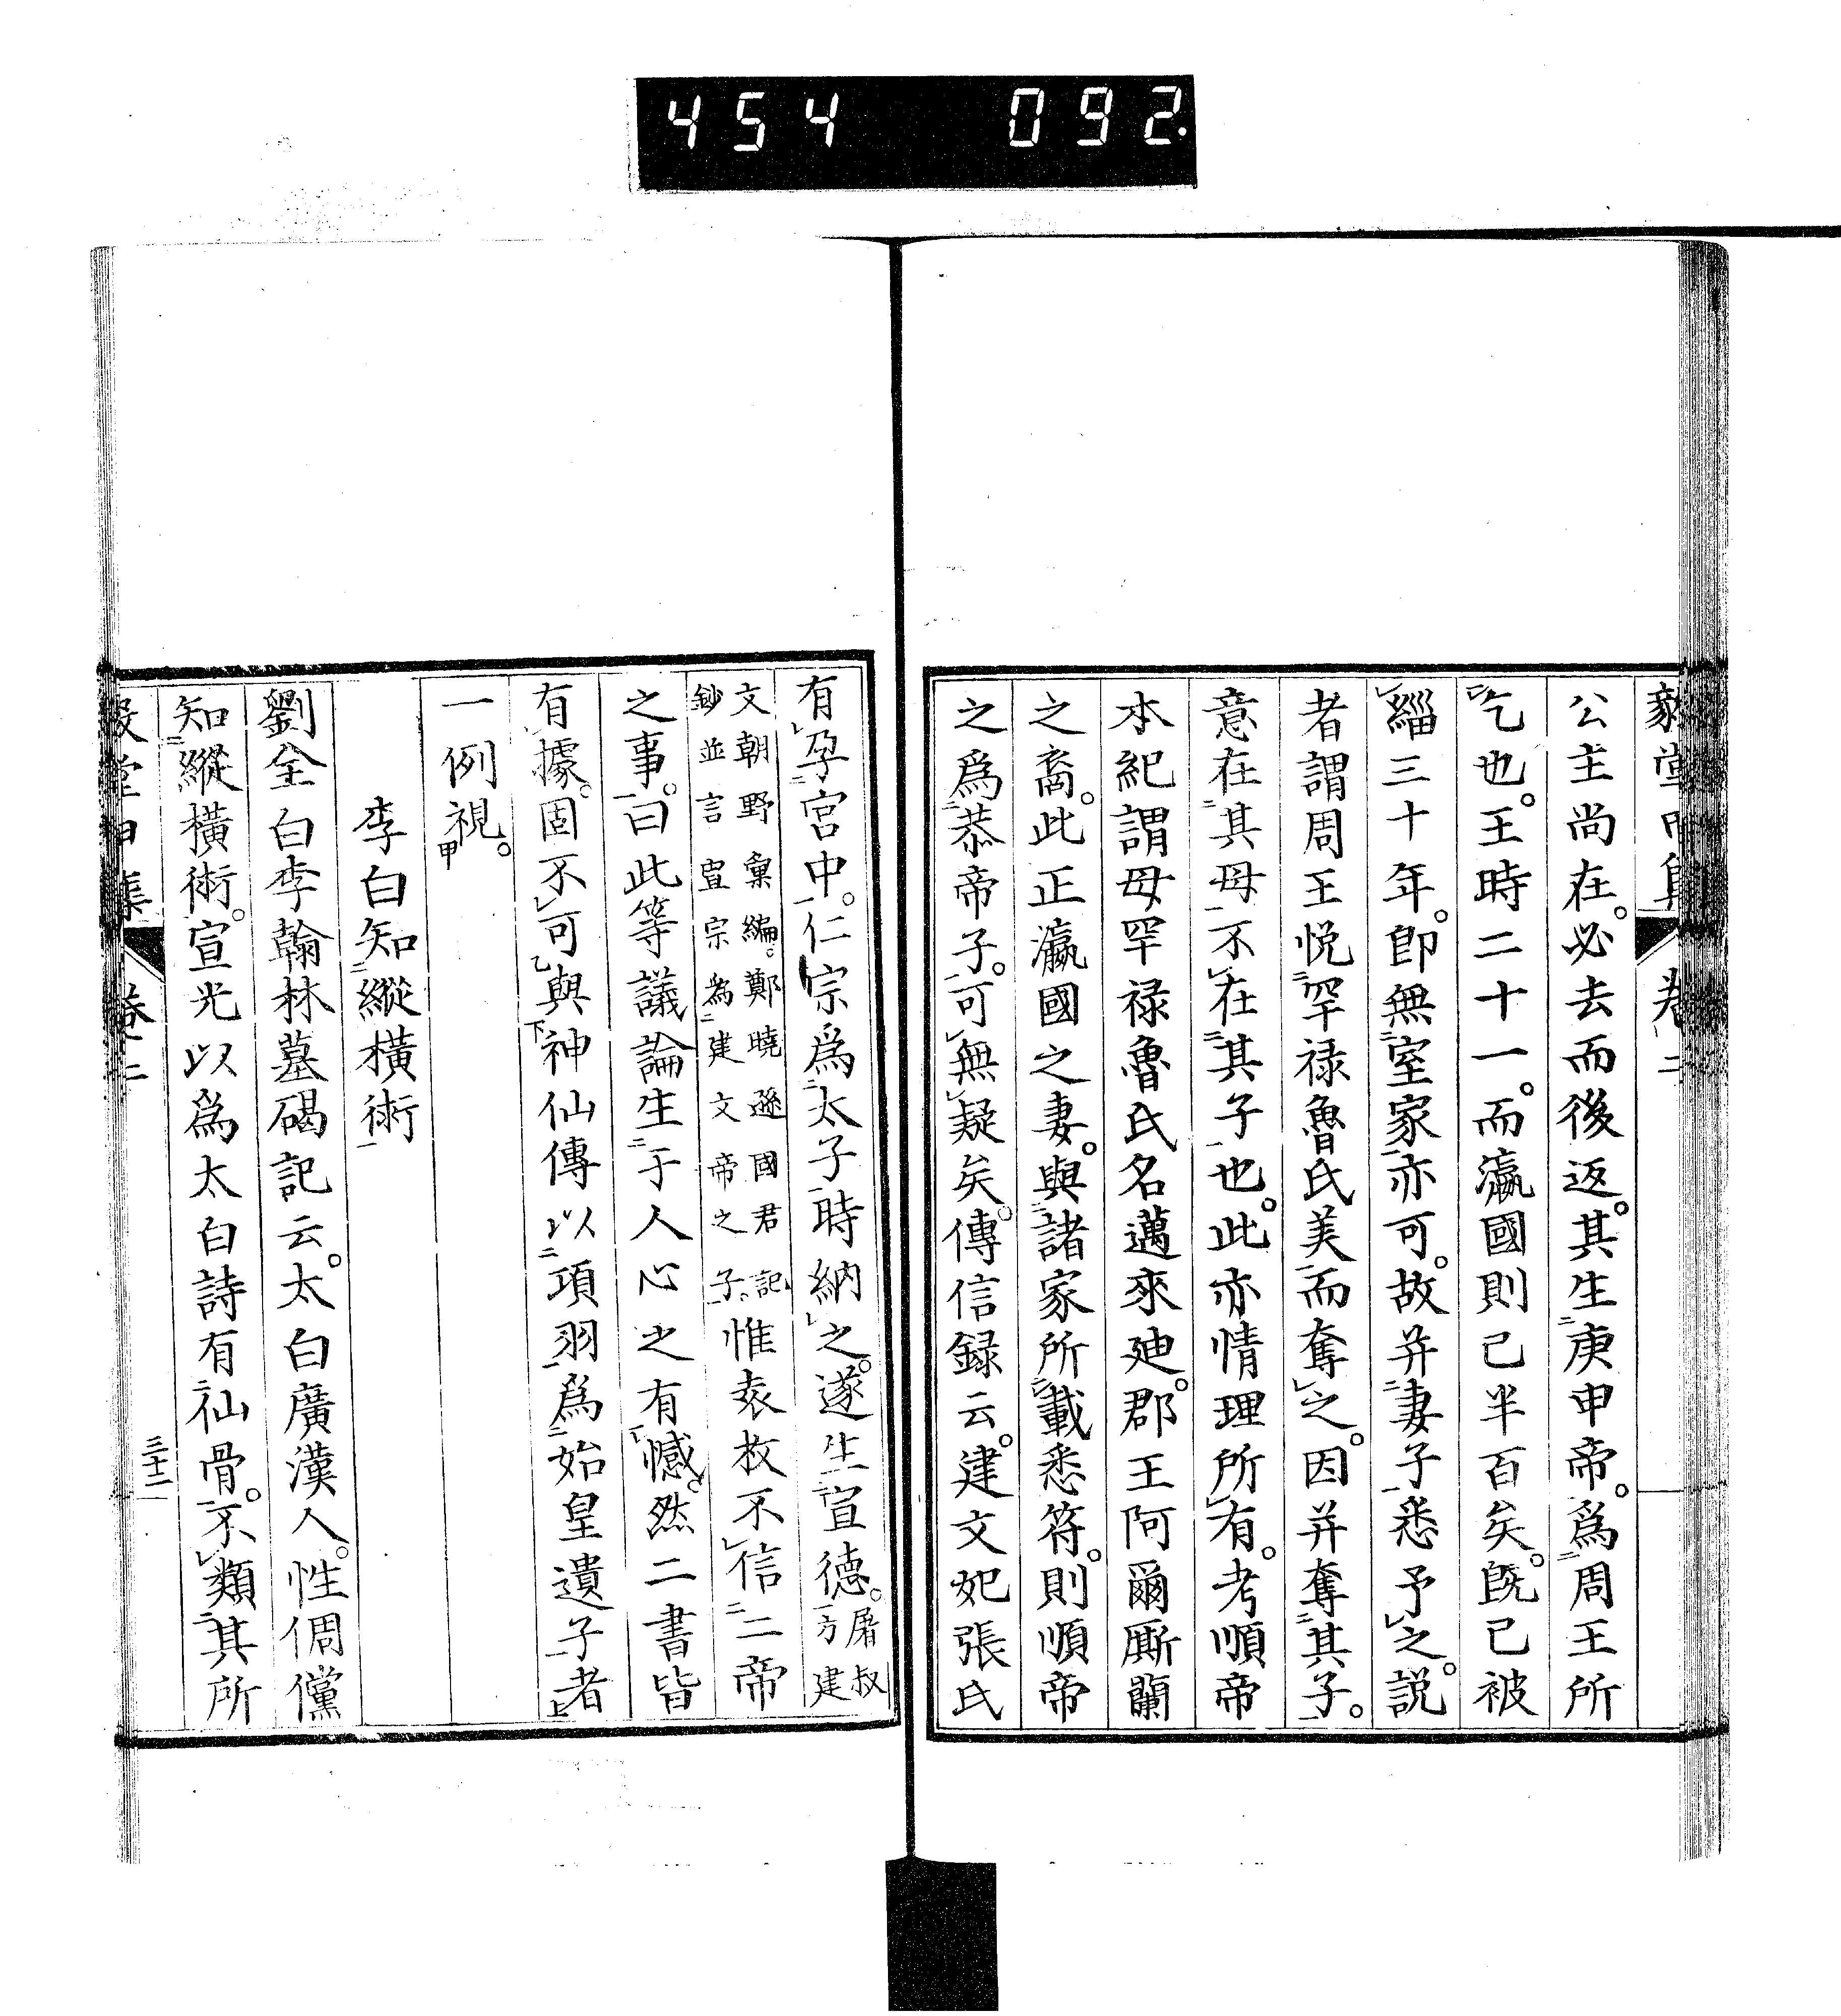 454 092.
公主尚在。必去而後返。其生庚申帝。爲周王所
乞也。王時二十一。而瀛國則已半百矣。旣已被
緇三十年。卽無室家亦可。故并妻子悉予之。說
者謂周王悅罕祿魯氏美而奪之。因并奪其子。
意在其母。不在其子也。此亦情理所有。考順帝
本紀謂母罕祿魯氏名邁來迪。郡王阿爾厮蘭
之裔。此正瀛國之妻。與諸家所載悉符。則順帝
之爲恭帝子。可無疑矣。傳信錄云。建文妃張氏
有孕宮中。仁宗爲太子時納之。遂生宣德。屠叔方建
文朝野彙編。鄭曉遜國君記
鈔並言宣宗爲建文帝之子。惟袁枚不信二帝
之事。曰此等議論生于人心之有憾。然二書皆
有據。固不可與神仙傳以項羽爲始皇遺子者
一例視。
李白知縱橫術
劉全白李翰林墓碣記云。太白廣漢人。性倜儻
知縱橫術。宣光以爲太白詩有仙骨。不類其所
卷二
三十二